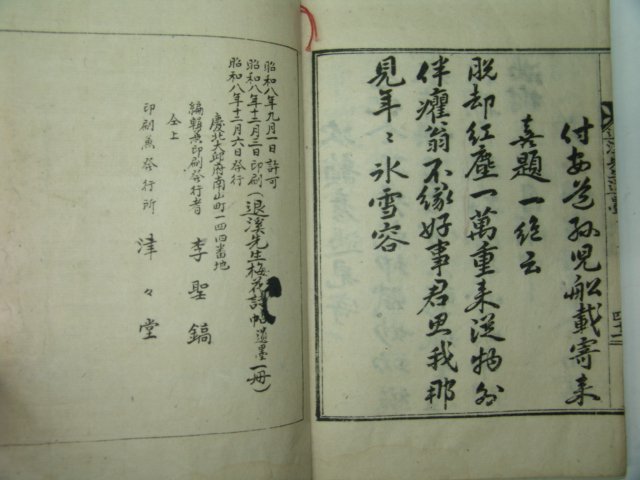 付安道孫兒船載寄来
喜題一絶云
脫却紅塵一萬重来從物外
伴癯翁不緣好事君思我那
見年〻氷雪容
昭和八年九月一日許可
昭和八年十二月三日印刷(退溪先生梅花詩帖遺墨一冊)
昭和八年十二月六日發行
慶北大邱府南山町一四四番地
編輯兼印刷發行者 李聖鎬
仝上
印刷兼發行所 津々堂